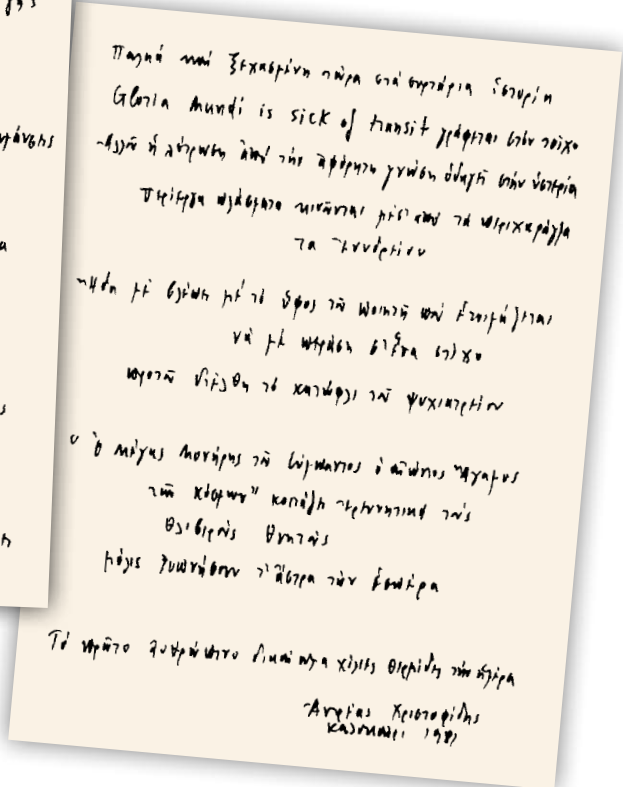 ης
Παληά καί ξεχασμένη τώρα στά συρτάρια ἱστορία
Gloria mundi is sick of transit γράφεται στόν τοῖχο
Ἀλλά ἡ λύτρωση ἀπό τήν ἀφόρητη γνώση ὁδηγεῖ στήν ὑστερία
Περίεργα πλάσματα κινοῦνται μέσ' ἀπό τά
τα
μέ μέ τό ὕφος τοῦ ποιητῆ πού ἑτοιμάζεται
νά μέ περάση σ' ἕνα στίχο
προτοῦ διέλθη τό κατώφλι τοῦ ψυχιατρείου
Ὁ Μέγας Μονήρης τοῦ Σύμπαντος ὁ αἰώνιος Ἄγαμος
τοῦ κόσμου" κοιτάζει ἐρευνητικά τούς
θλιβερούς θνητούς
μόλις ξυπνήσουν τ' ἄστρα τήν ἑσπέρα
Τό πρῶτο ἀνθρώπινο δικαίωμα χίλιες θερμίδες τήν ἡμέρα
Ἀντρέας Χριστοφίδης
Καλοκαίρι 1981